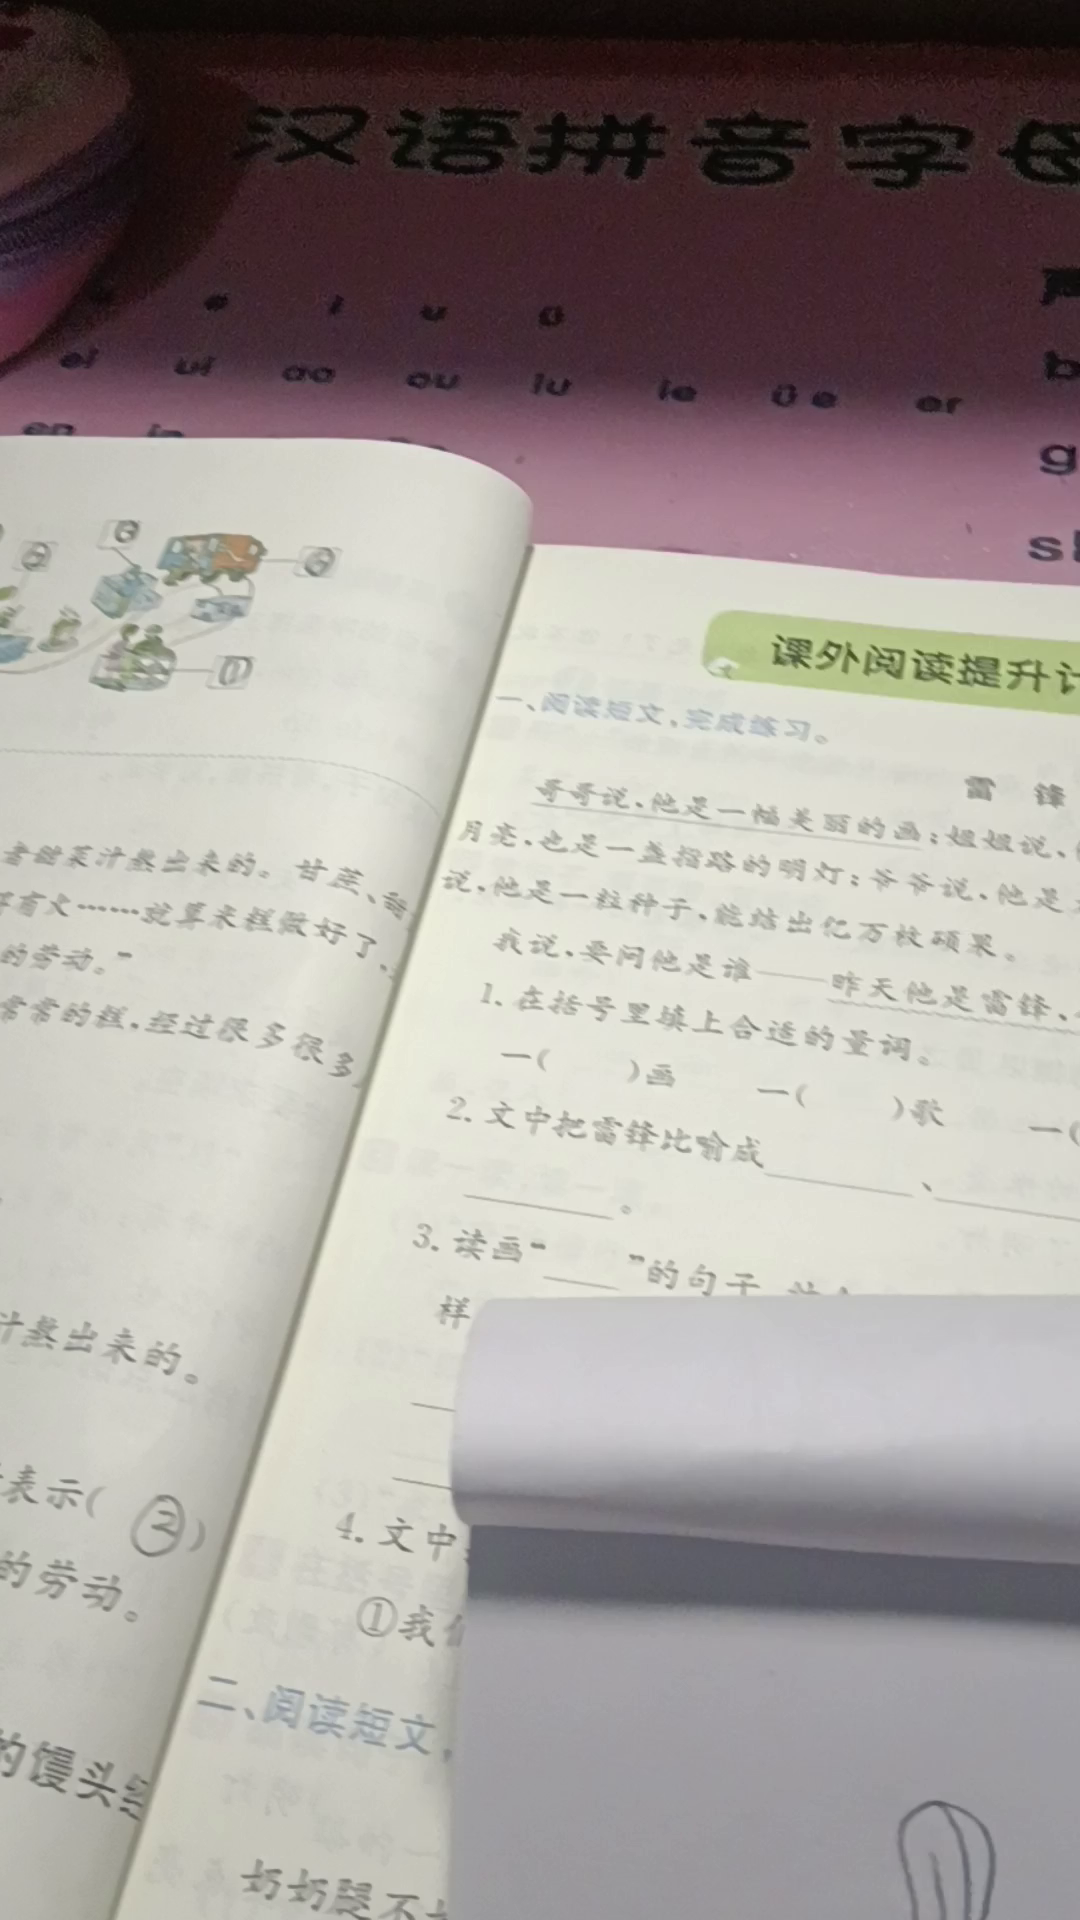 汉语拼音字母
e i u ü
ei ui ao ou iu ie üe er
b
g
①
者甜菜汁熬出来的。甘蔗、甜
有火……就算米糕做好了,
的劳动。”
常常的糕,经过很多很多
汁熬出来的。
表示( ② )
的劳动。
的馒头经
课外阅读提升计
一、阅读短文,完成练习。
雷 锋
哥哥说,他是一幅美丽的画;姐姐说,
月亮,也是一盏指路的明灯;爷爷说,他是
说,他是一粒种子,能结出亿万枚硕果。
我说,要问他是谁——昨天他是雷锋,
1. 在括号里填上合适的量词。
一( )画 一( )歌 一(
2. 文中把雷锋比喻成 、
。
3. 读画“ ”的句子
样
4. 文中
①我们
二、阅读短文,
奶奶腿不